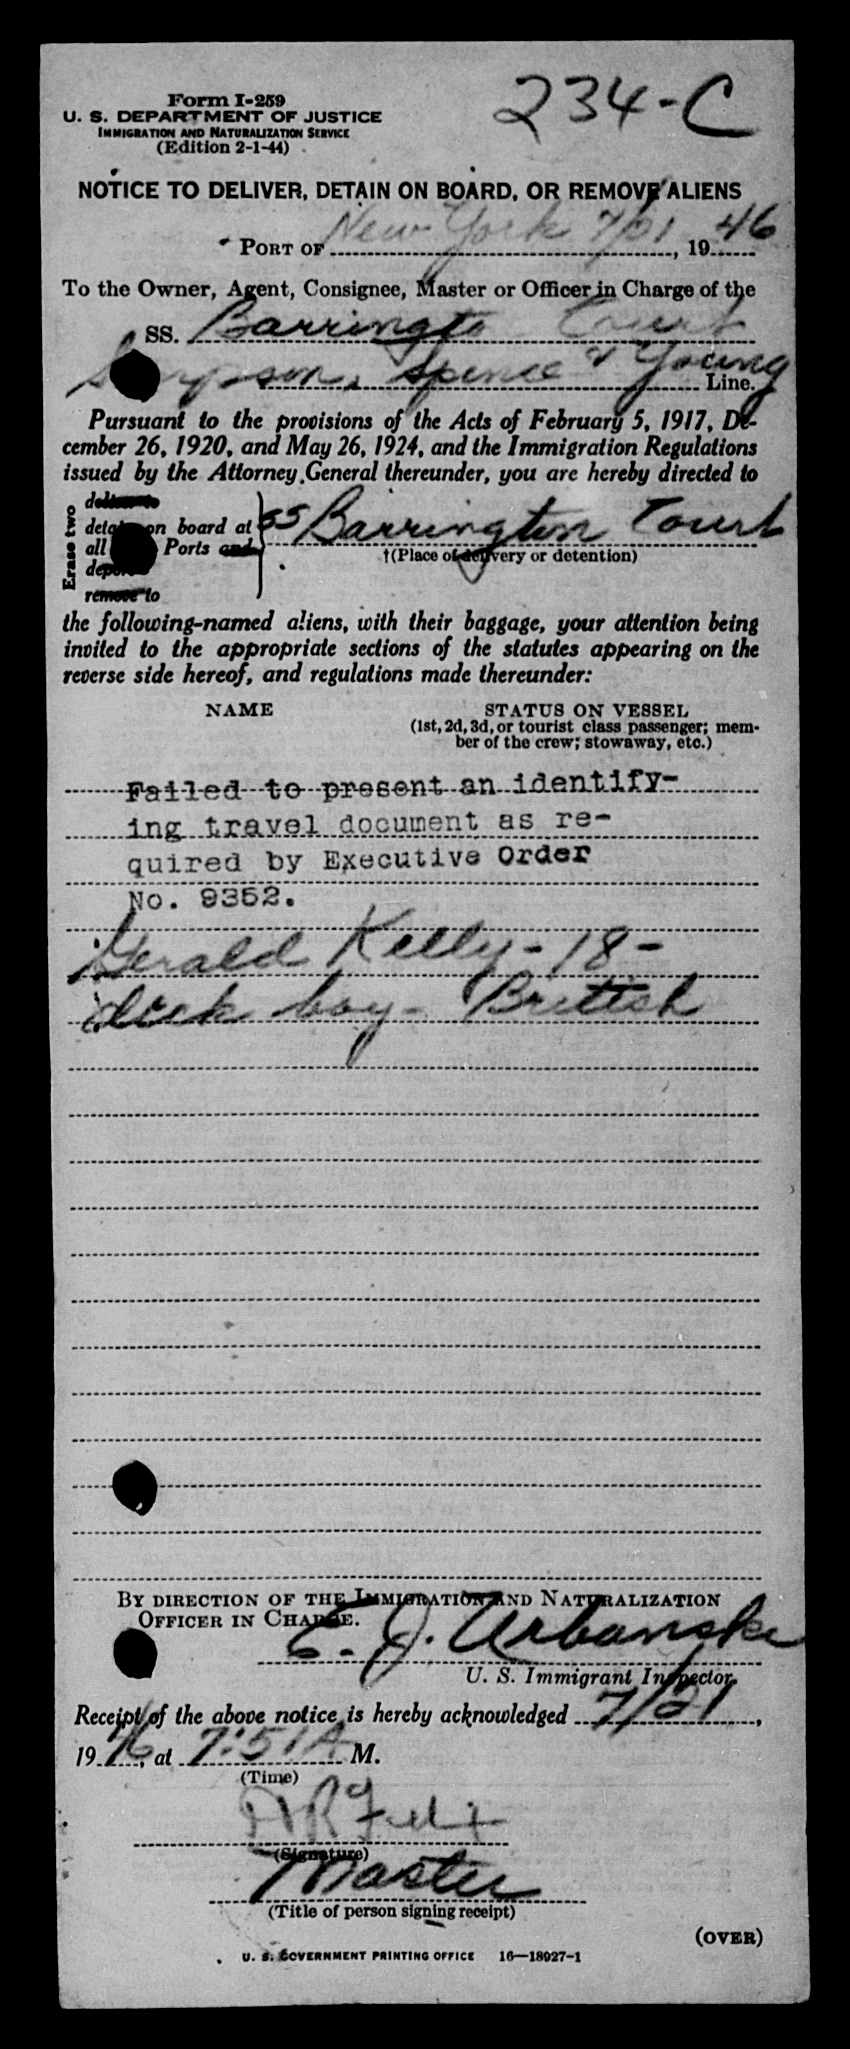 234-C
Form I-259
U. S. DEPARTMENT OF JUSTICE
IMMIGRATION AND NATURALIZATION SERVICE
(Edition 2-1-44)
NOTICE TO DELIVER, DETAIN ON BOARD, OR REMOVE ALIENS
PORT OF New York 7/21, 1946
To the Owner, Agent, Consignee, Master or Officer in Charge of the
SS. Barrington Court
Simpson, Spence & Young Line.
Pursuant to the provisions of the Acts of February 5, 1917, De-
cember 26, 1920, and May 26, 1924, and the Immigration Regulations
issued by the Attorney General thereunder, you are hereby directed to
Erase two
deliver to
detain on board at
all Ports and
deport
remove to
SS Barrington Court
†(Place of delivery or detention)
the following-named aliens, with their baggage, your attention being
invited to the appropriate sections of the statutes appearing on the
reverse side hereof, and regulations made thereunder:
NAME STATUS ON VESSEL
(1st, 2d, 3d, or tourist class passenger; mem-
ber of the crew; stowaway, etc.)
Failed to present an identify-
ing travel document as re-
quired by Executive Order
No. 9352.
Gerald Kelly - 18 -
deck boy - British
BY DIRECTION OF THE IMMIGRATION AND NATURALIZATION
OFFICER IN CHARGE.
E. J. Urbanski
U. S. Immigrant Inspector.
Receipt of the above notice is hereby acknowledged 7/21,
1946, at 7:51A M.
(Time)
(Signature)
Master
(Title of person signing receipt)
(OVER)
U. S. GOVERNMENT PRINTING OFFICE 16—18927-1